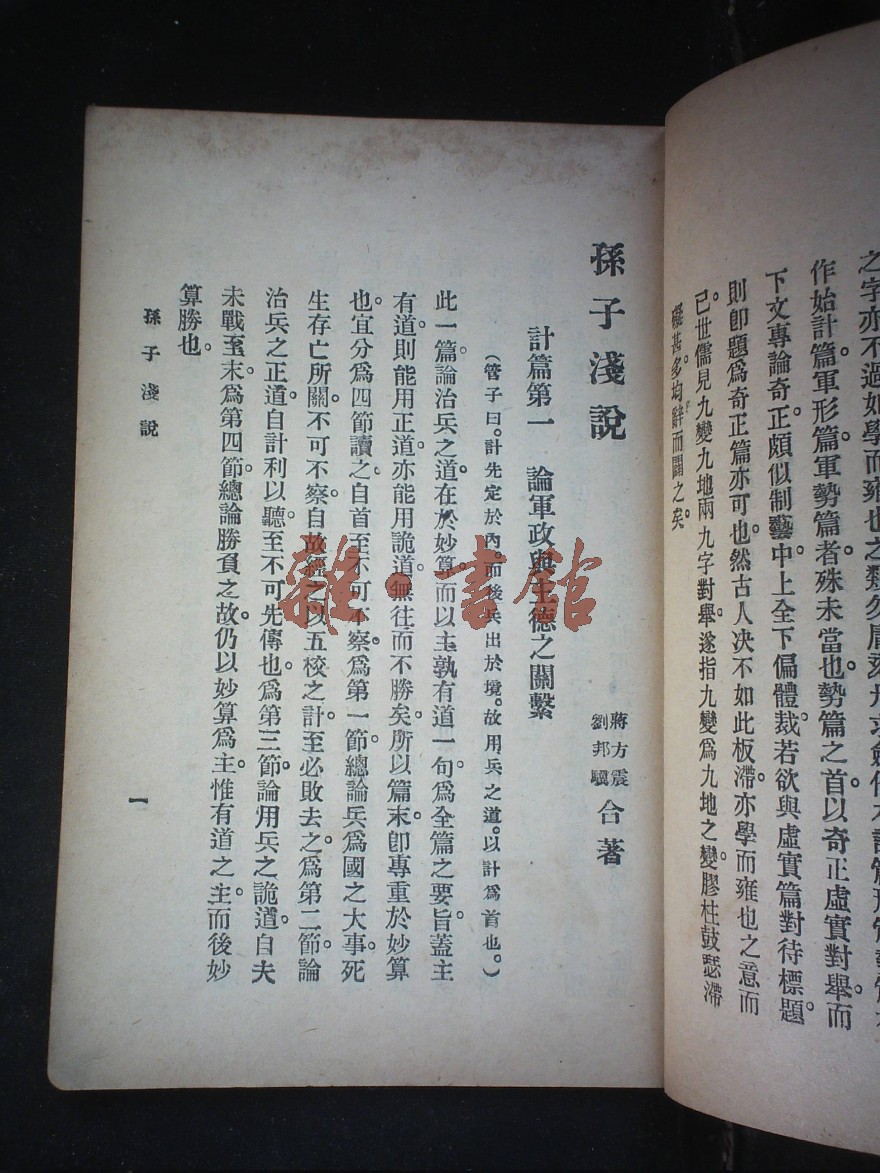 之字亦不過如學而雍也之類
作始計篇軍形篇軍勢篇者殊未當也勢篇之首以奇正虛實對舉而
下文專論奇正頗似制藝中上全下偏體裁若欲與虛實篇對待標題
則卽題爲奇正篇亦可也然古人決不如此板滯亦學而雍也之意而
已世儒見九變九地兩九字對舉遂指九變爲九地之變膠柱鼓瑟滯
礙甚多均辭而闢之矣
孫子淺說
蔣方震
劉邦驥
合著
計篇第一 論軍政與主德之關繫
(管子曰。計先定於內。而後兵出於境。故用兵之道。以計爲首也。)
此一篇論治兵之道在於妙算而以主孰有道一句爲全篇之要旨蓋主
有道則能用正道亦能用詭道無往而不勝矣所以篇末卽專重於妙算
也宜分爲四節讀之自首至不可不察爲第一節總論兵爲國之大事死
生存亡所關不可不察自故經之以五校之計至必敗去之爲第二節論
治兵之正道自計利以聽至不可先傳也爲第三節論用兵之詭道自夫
未戰至末爲第四節總論勝負之故仍以妙算爲主惟有道之主而後妙
算勝也
孫子淺說
一
雜·書館